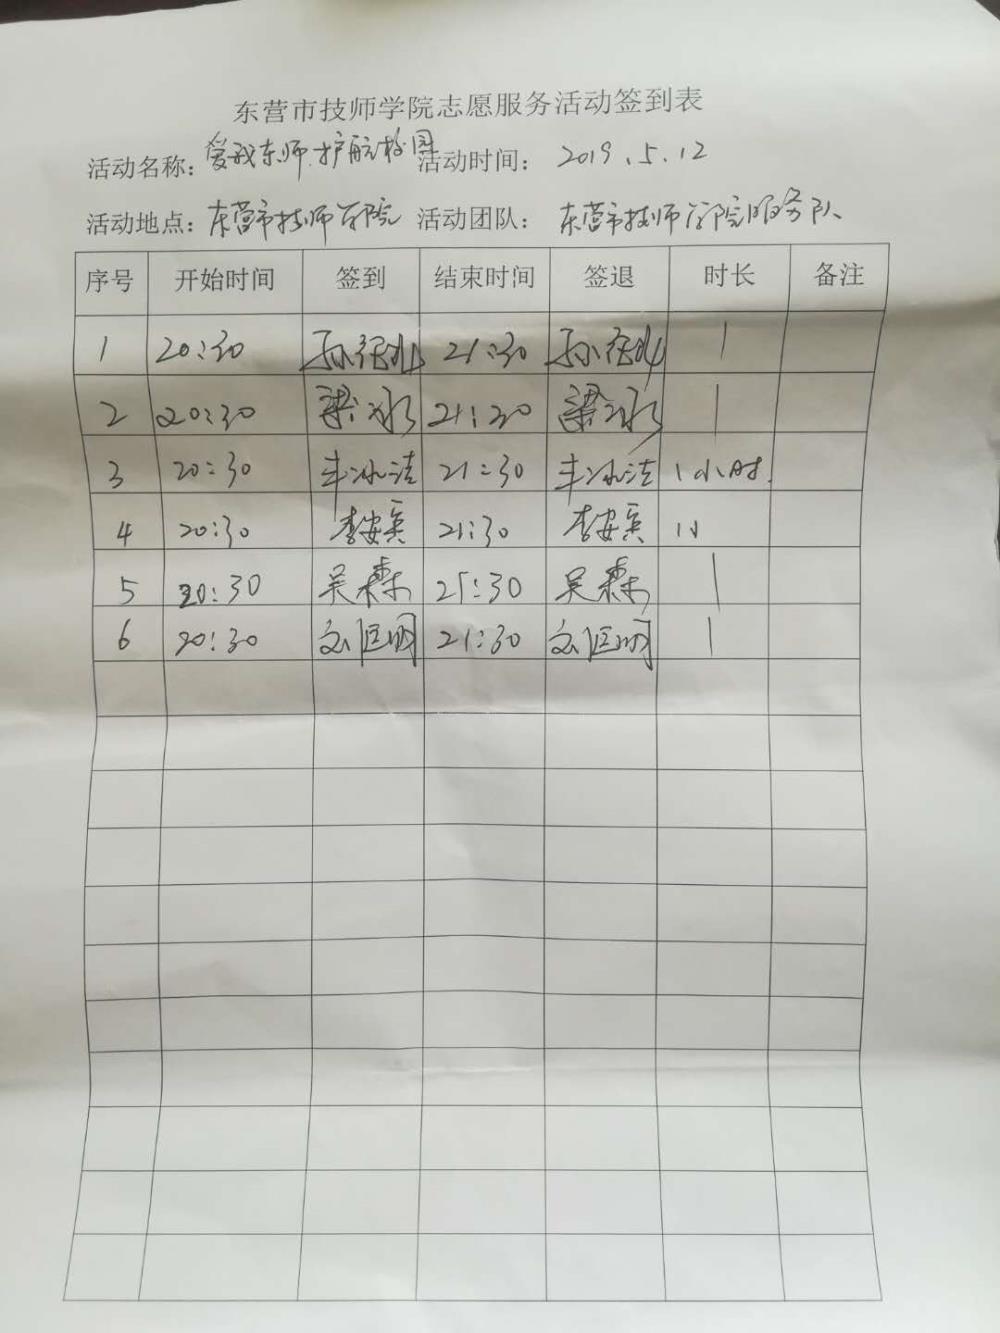 东营市技师学院志愿服务活动签到表
活动名称：爱我东师.护航校园 活动时间： 2019.5.12
活动地点：东营市技师学院 活动团队： 东营市技师学院服务队
序号 开始时间 签到 结束时间 签退 时长 备注
1 20:30 21:30 1
2 20:30 梁冰 21:30 梁冰 1
3 20:30 牟冰洁 21:30 牟冰洁 1小时.
4 20:30 李安英 21:30 李安英 1小
5 20:30 吴森 21:30 吴森 1
6 20:30 21:30 1